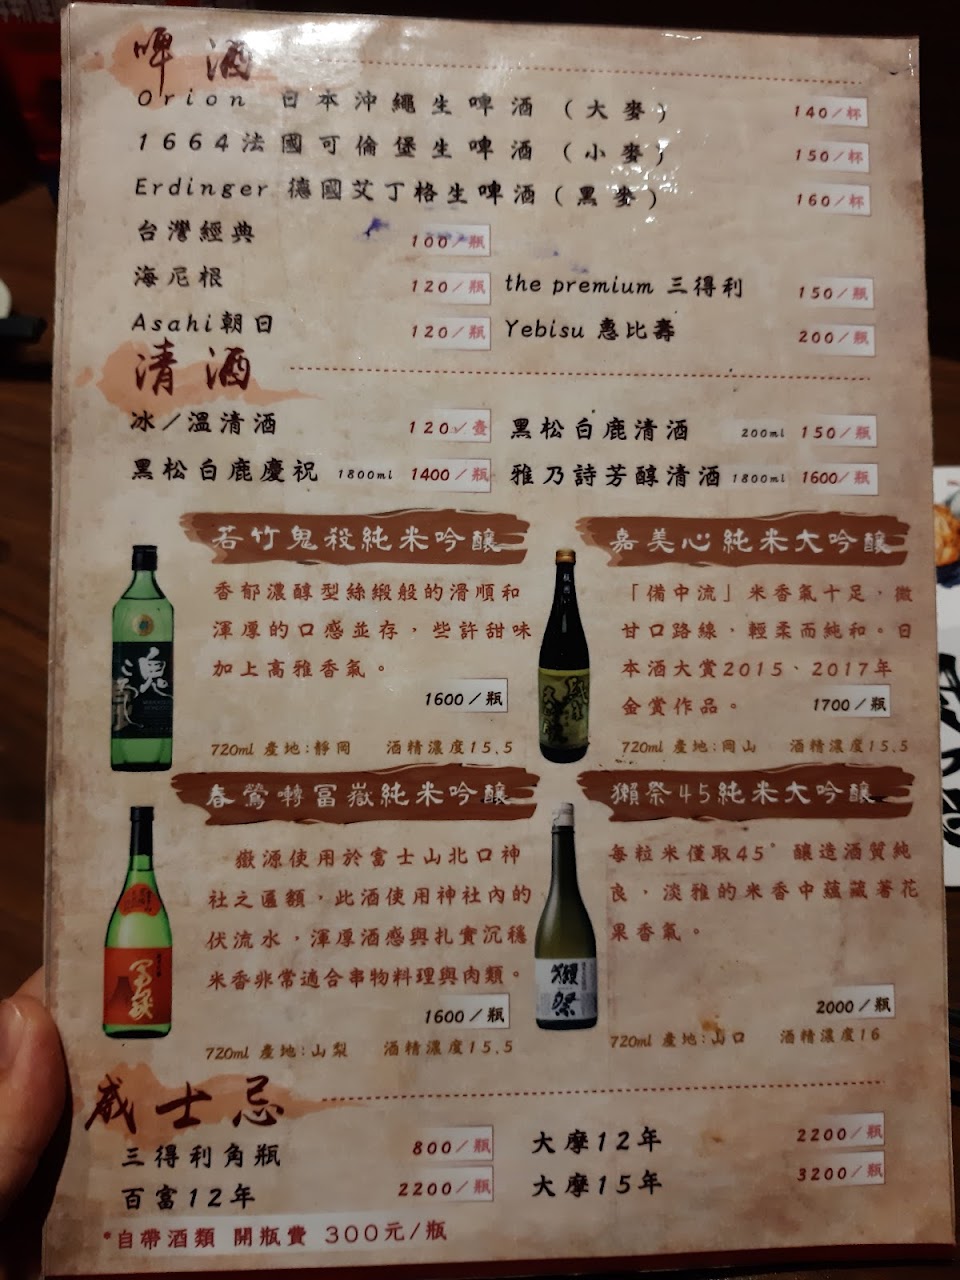 啤酒
Orion 日本沖繩生啤酒（大麥） 140／杯
1664法國可倫堡生啤酒（小麥） 150／杯
Erdinger 德國艾丁格生啤酒（黑麥） 160／杯
台灣經典 100／瓶
海尼根 120／瓶 the premium 三得利 150／瓶
Asahi朝日 120／瓶 Yebisu 惠比壽 200／瓶
清酒
冰／溫清酒 120／壺 黑松白鹿清酒 200ml 150／瓶
黑松白鹿慶祝 1800ml 1400／瓶 雅乃詩芳醇清酒 1800ml 1600／瓶
若竹鬼殺純米吟釀
香郁濃醇型絲緞般的滑順和
渾厚的口感並存，些許甜味
加上高雅香氣。
1600／瓶
720ml 產地:靜岡 酒精濃度15.5
嘉美心純米大吟釀
「備中流」米香氣十足，微
甘口路線，輕柔而純和。日
本酒大賞2015、2017年
金賞作品。
1700／瓶
720ml 產地:岡山 酒精濃度15.5
春鶯囀冨嶽純米吟釀
嶽源使用於富士山北口神
社之匾額，此酒使用神社內的
伏流水，渾厚酒感與扎實沉穩
米香非常適合串物料理與肉類。
1600／瓶
720ml 產地:山梨 酒精濃度15.5
獺祭45純米大吟釀
每粒米僅取45° 釀造酒質純
良，淡雅的米香中蘊藏著花
果香氣。
2000／瓶
720ml 產地:山口 酒精濃度16
威士忌
三得利角瓶 800／瓶 大摩12年 2200／瓶
百富12年 2200／瓶 大摩15年 3200／瓶
*自帶酒類 開瓶費 300元/瓶